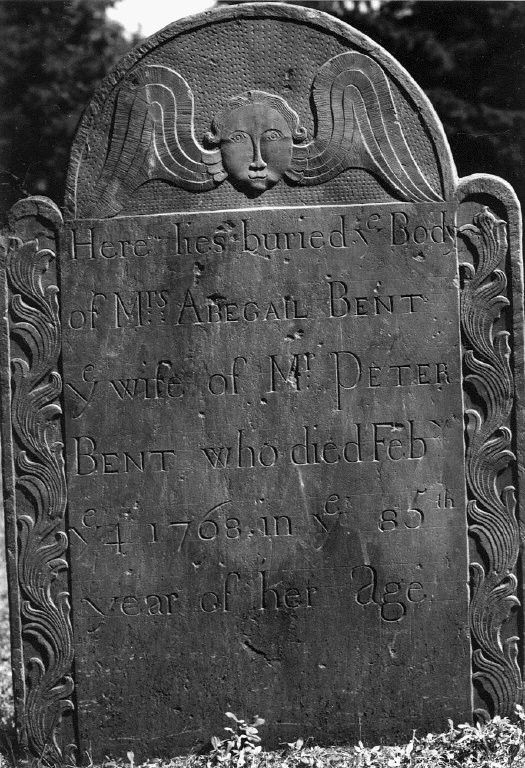 Here lies buried yᵉ Body
of Mʳˢ ABEGAIL BENT
yᵉ wife of Mʳ PETER
BENT who died Febʸ
yᵉ 4 1768 in yᵉ 85ᵗʰ
year of her Age.